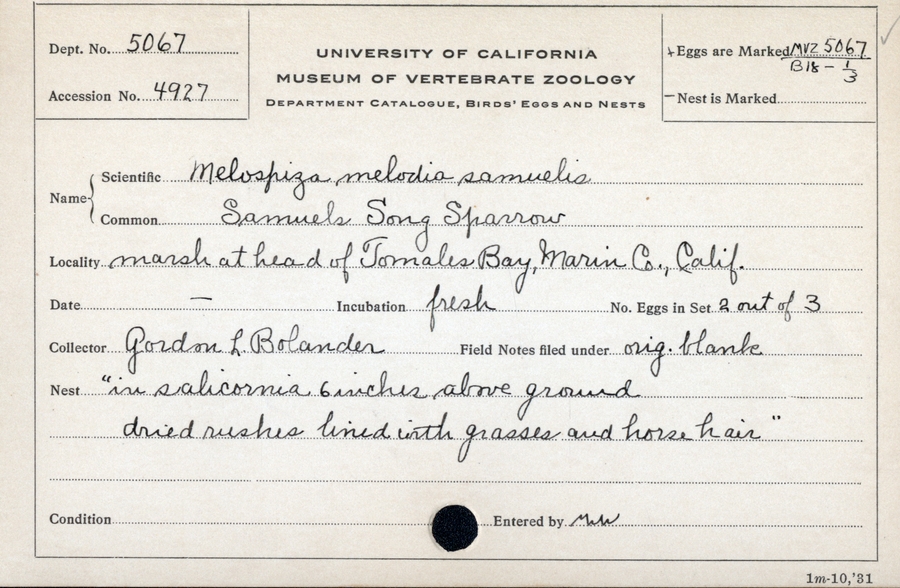 Dept. No. 5067
Accession No. 4927
UNIVERSITY OF CALIFORNIA
MUSEUM OF VERTEBRATE ZOOLOGY
DEPARTMENT CATALOGUE, BIRDS' EGGS AND NESTS
+Eggs are Marked MVZ 5067
B18 - 1/3
-Nest is Marked
Name Scientific Melospiza melodia samuelis
Common Samuels Song Sparrow
Locality marsh at head of Tomales Bay, Marin Co., Calif.
Date — Incubation fresh No. Eggs in Set 2 out of 3
Collector Gordon L. Bolander Field Notes filed under orig. blank
Nest "in salicornia 6 inches above ground
dried rushes lined with grasses and horse hair"
Condition Entered by
1m-10,'31